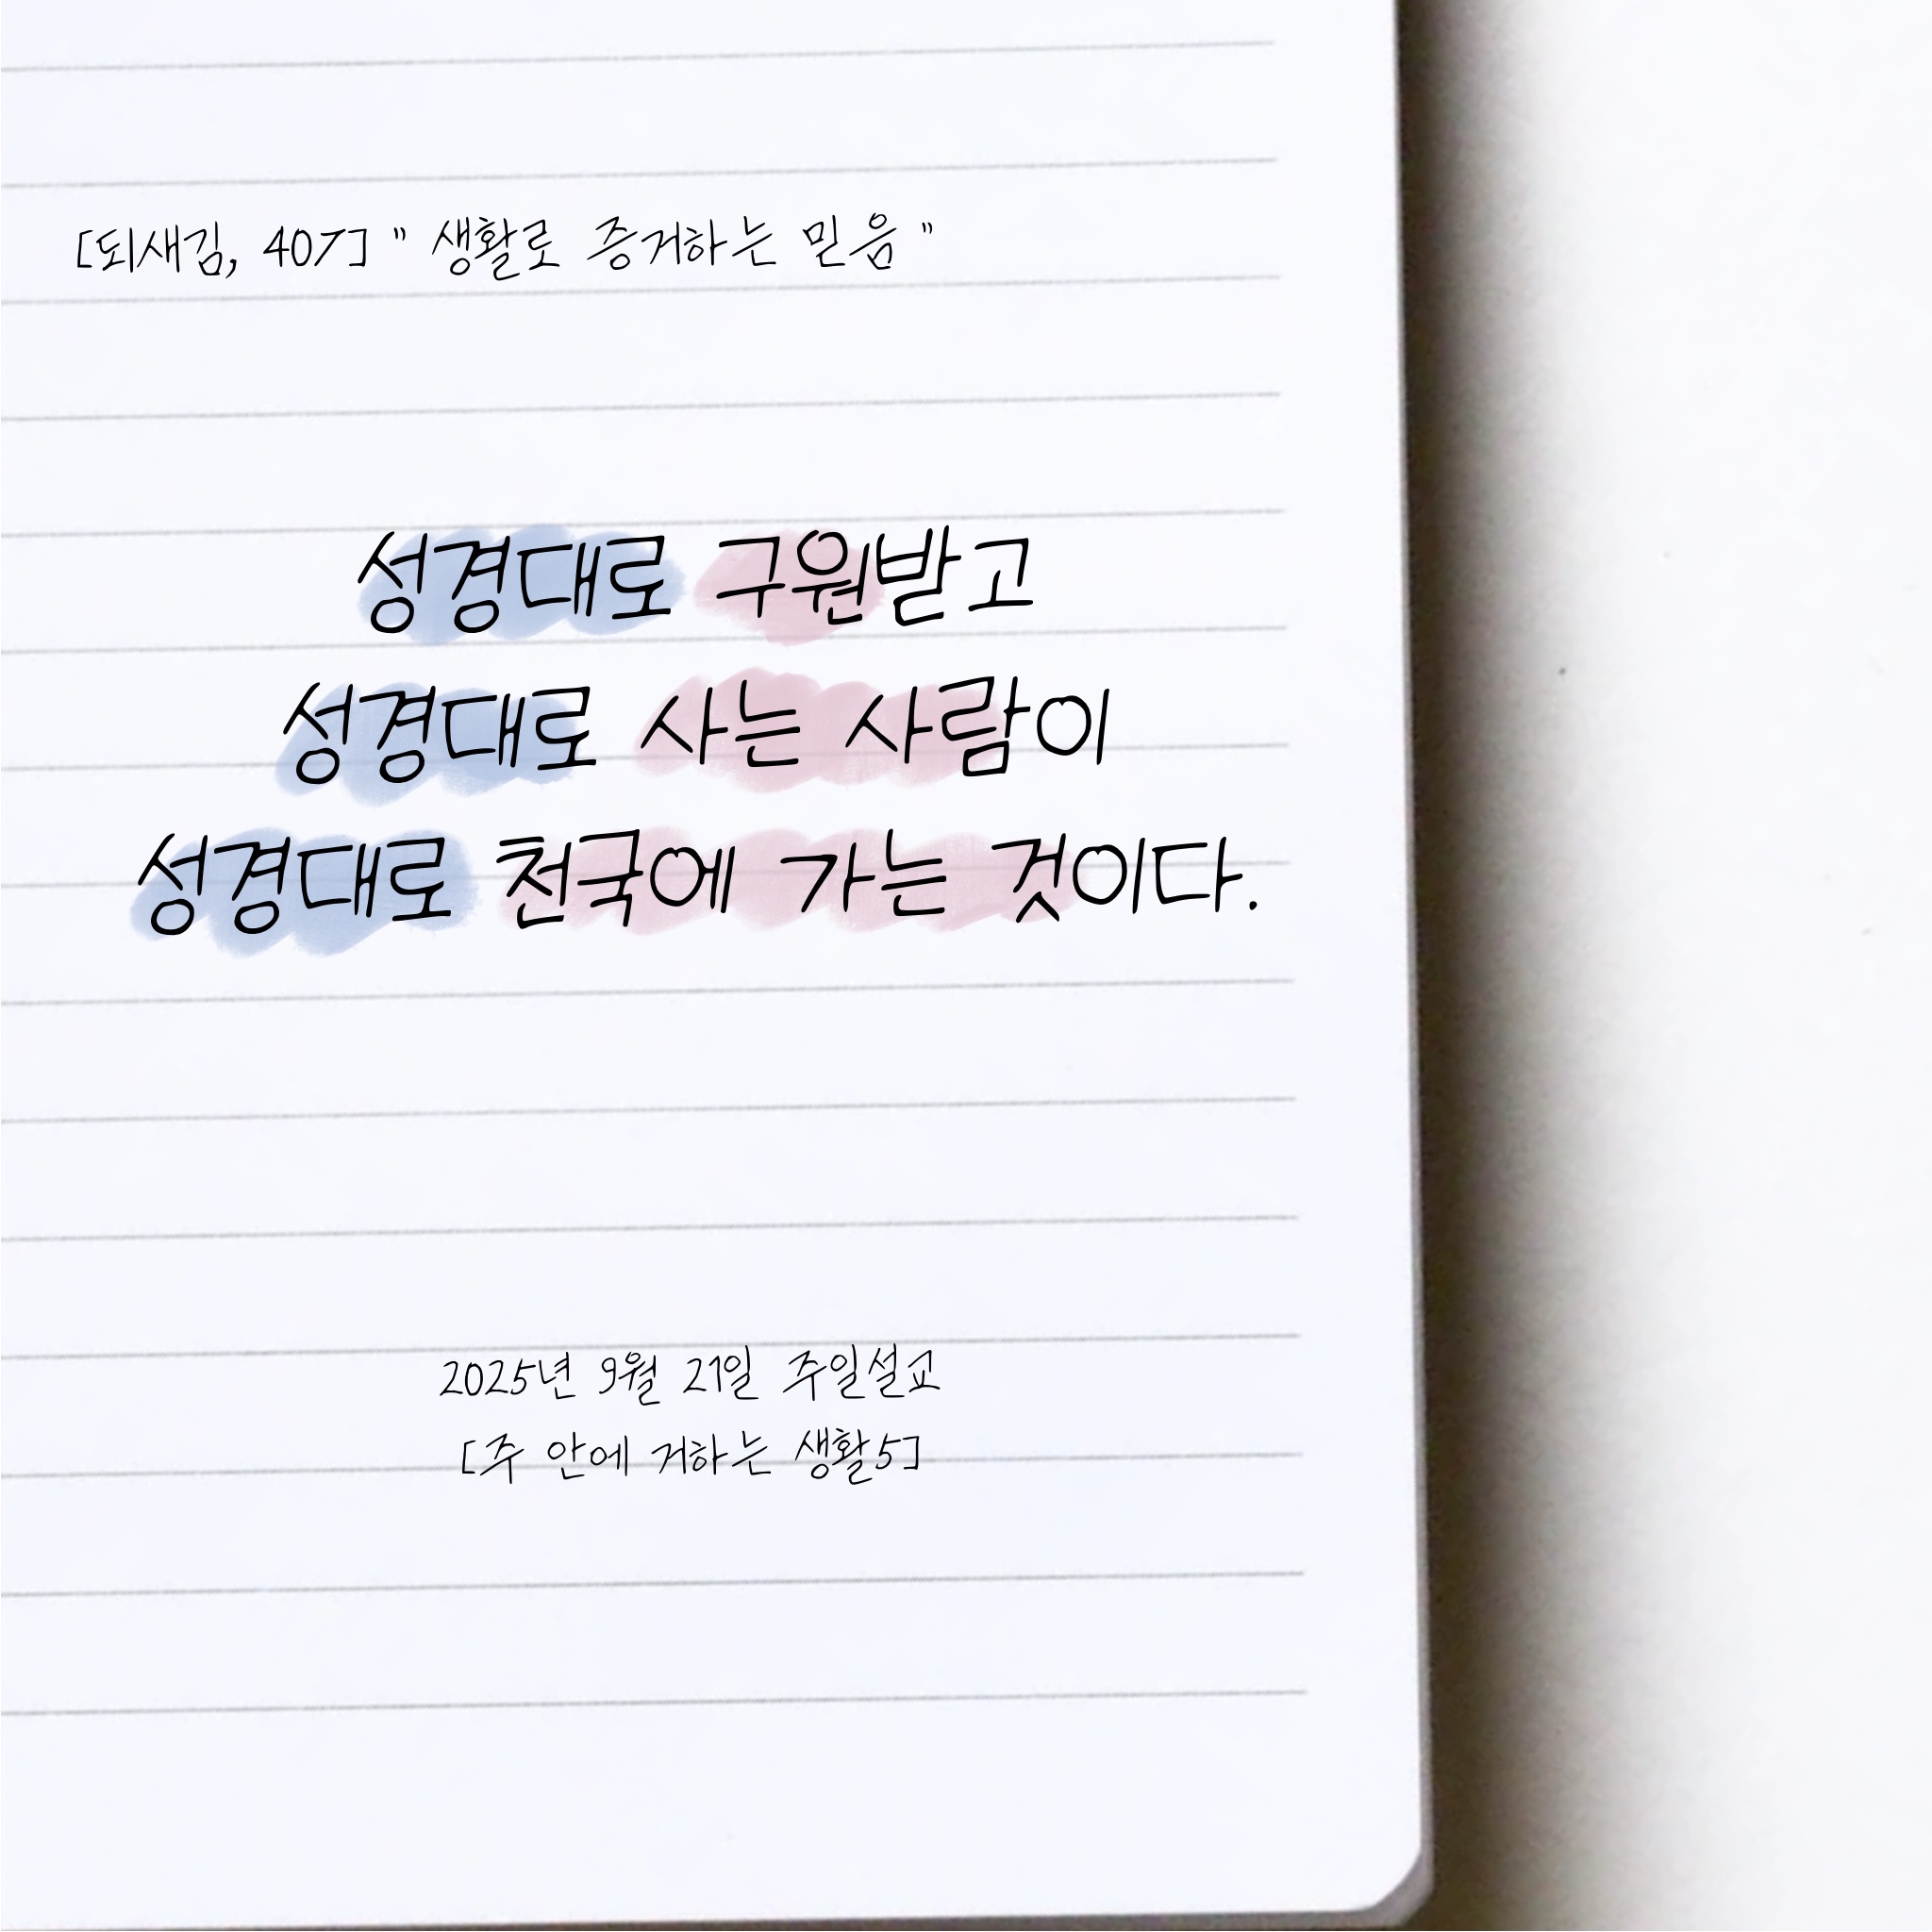 [되새김, 407] " 생활로 증거하는 믿음 "
성경대로 구원받고
성경대로 사는 사람이
성경대로 천국에 가는 것이다.
2025년 9월 21일 주일설교
[주 안에 거하는 생활5]